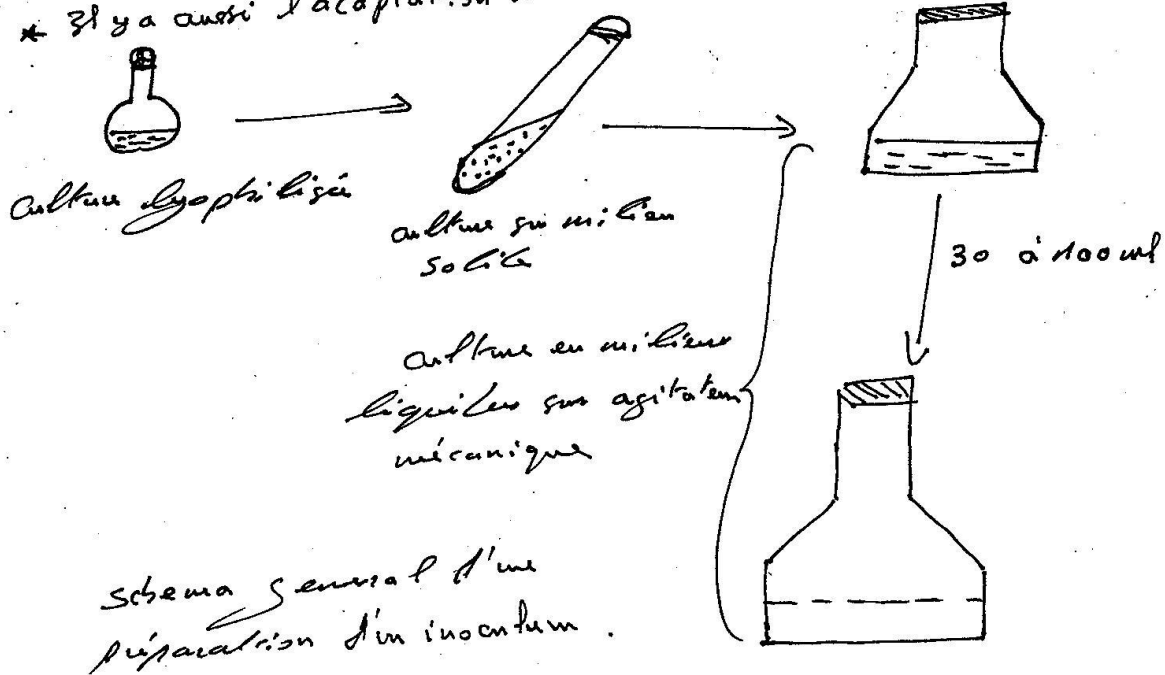 * Il y a aussi l'adaptation
culture lyophilisée
culture sur milieu
solide
30 à 100 ml
culture en milieux
liquides sur agitateur
mécanique
schema general d'une
préparation d'un inoculum.